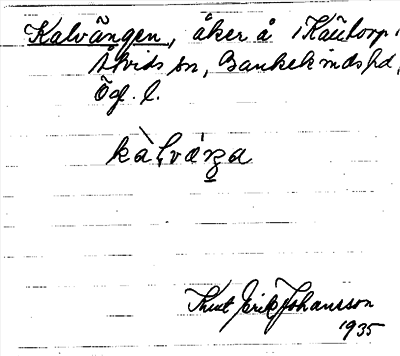 Kalvängen, åker å Kättorp,
Åtvids sn, Bankekinds hd,
Ög. l.
kàlváŋa
Knut Erik Johansson
1935